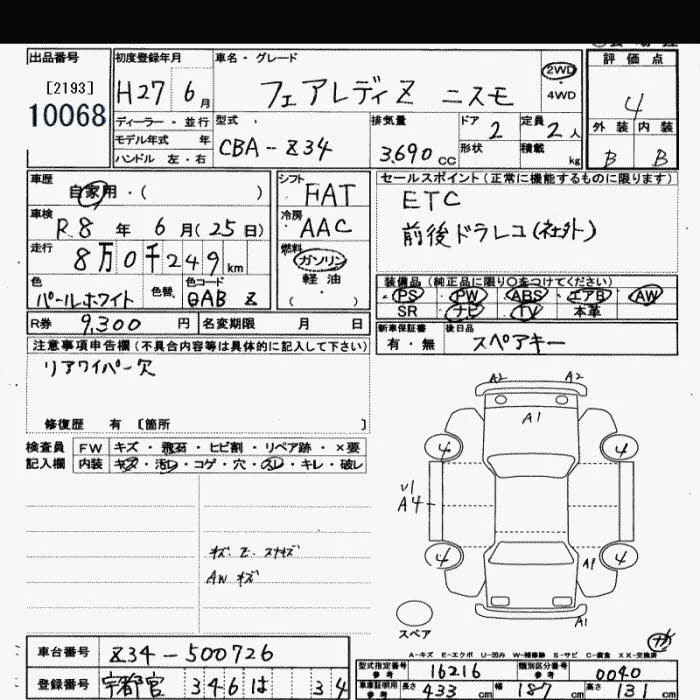 出品番号
[2193]
10068
初度登録年月
H27 6月
車名・グレード
フェアレディZ ニスモ
2WD
4WD
評価点
4
外装 内装
B B
ディーラー・並行
モデル年式 年
ハンドル 左・右
型式
CBA-Z34
排気量
3,690 CC
ドア 2
形状
定員 2人
積載 kg
車歴
自家用・( )
車検
R.8 年 6 月(25日)
走行
8万0千249km
色
パールホワイト
色替
色コード
QAB Z
シフト
FAT
冷房
AAC
燃料
ガソリン
軽油
( ・ )
セールスポイント(正常に機能するものに限ります)
ETC
前後ドラレコ
装備品(純正品に限り○をつけてください)
PS PW ABS エアB AW
SR ナビ TV 本革
R券 9,300 円
名変期限 月 日
新車保証書
有・無
後日品
スペアキー
注意事項申告欄(不具合内容等は具体的に記入して下さい)
リアワイパー欠
修復歴 有 [箇所 ]
検査員
記入欄
FW キズ・飛石・ヒビ割・リペア跡・×要
内装 キズ・汚レ・コゲ・穴・スレ・キレ・破レ
AWキズ
A2 A2
A1
4 4
U1
A4
4 4
A1
A1
スペア
A-キズ E-エクボ U-凹み W-補修跡 S-サビ C-腐食 XX-交換済
車台番号
Z34-500726
登録番号
宇都宮 346 は 34
型式指定番号
参考
16216
類別区分番号
参考
0040
車車証明用
参考
長さ 433 cm 幅 187 cm 高さ 131 cm